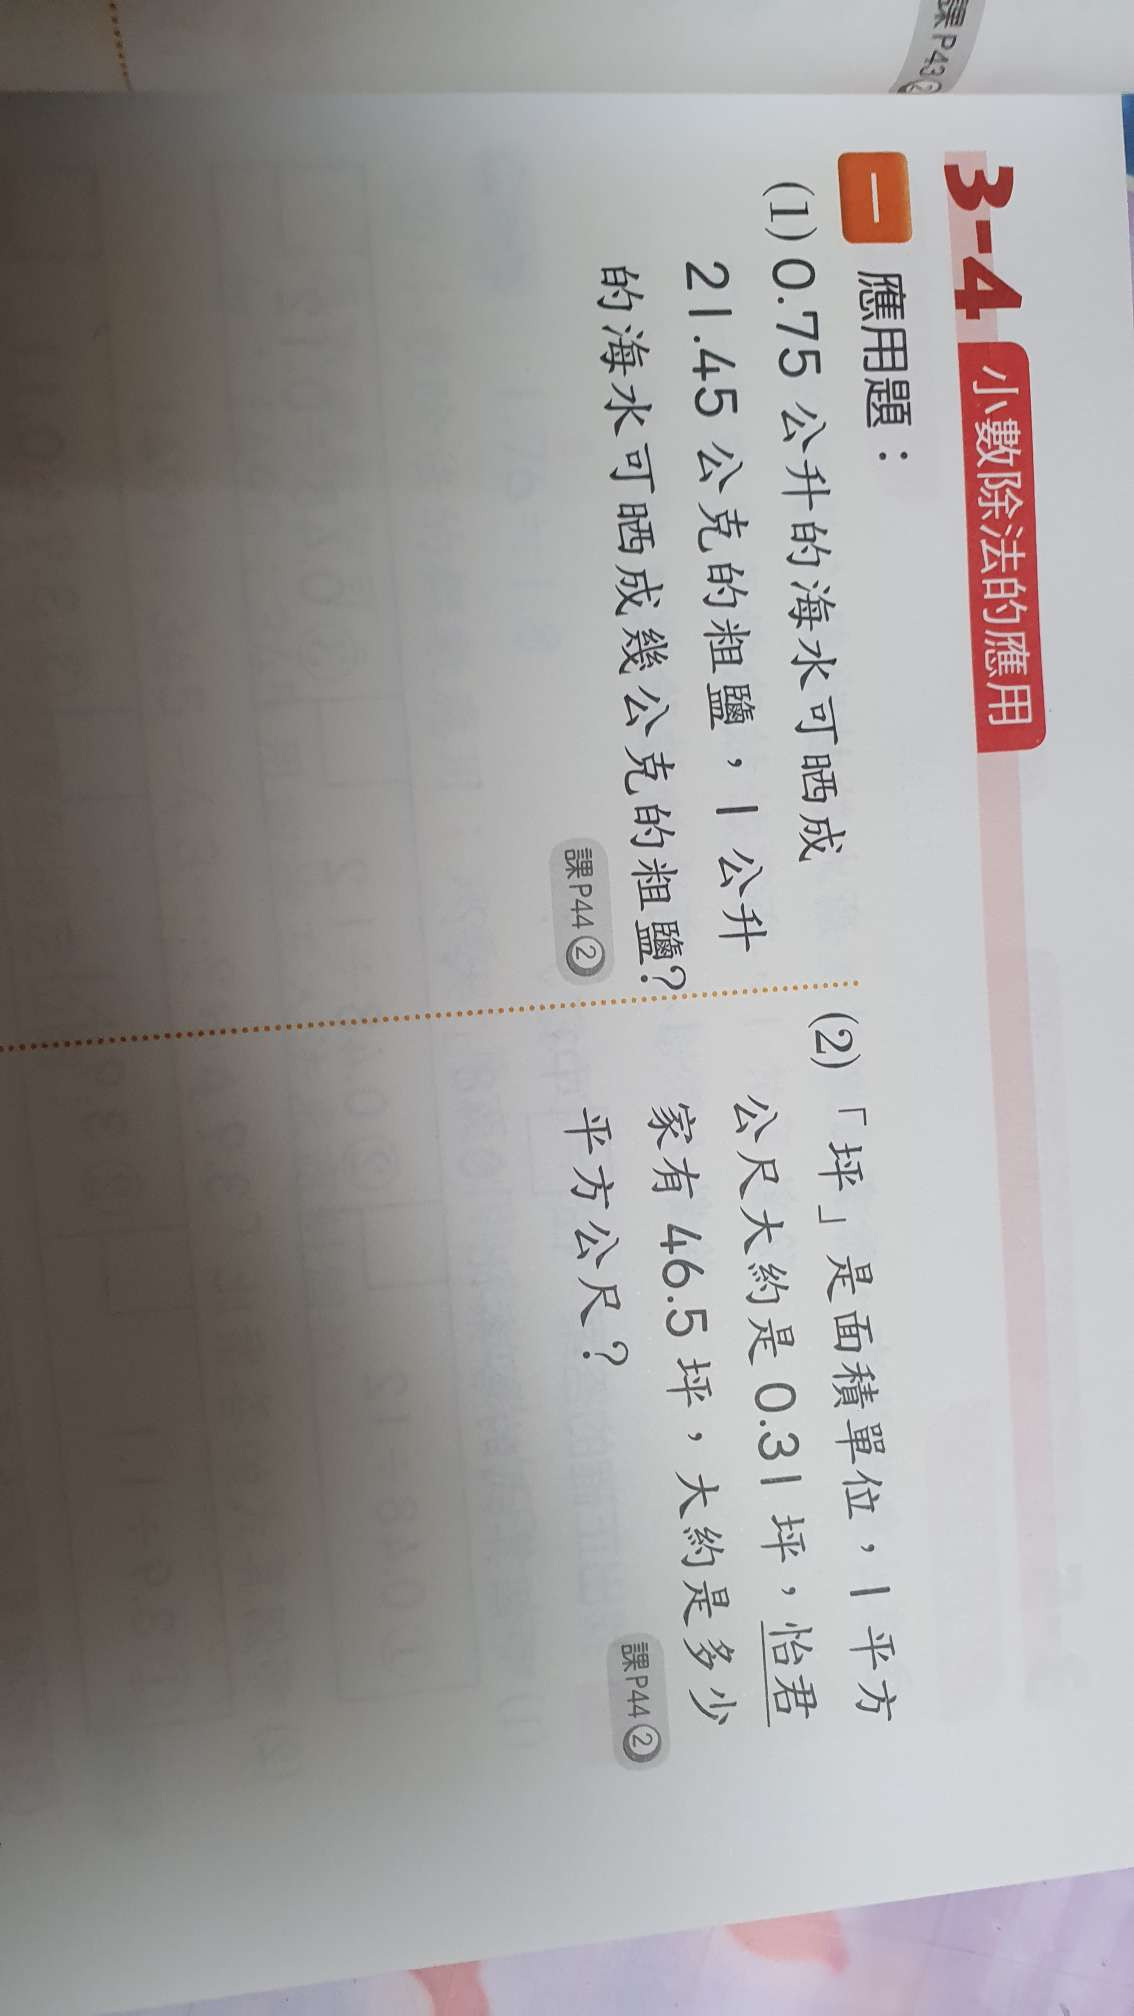 課P43②
3-4 小數除法的應用
一 應用題：
(1)0.75公升的海水可晒成
21.45公克的粗鹽，1公升
的海水可晒成幾公克的粗鹽？
課P44②
(2)「坪」是面積單位，1平方
公尺大約是0.31坪，怡君
家有46.5坪，大約是多少
平方公尺？
課P44②